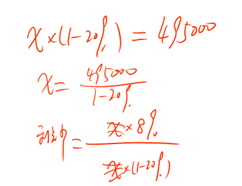 x×(1-20%) = 495000
x = 495000 / 1-20%
利润率 = x×8% / x×(1-20%)